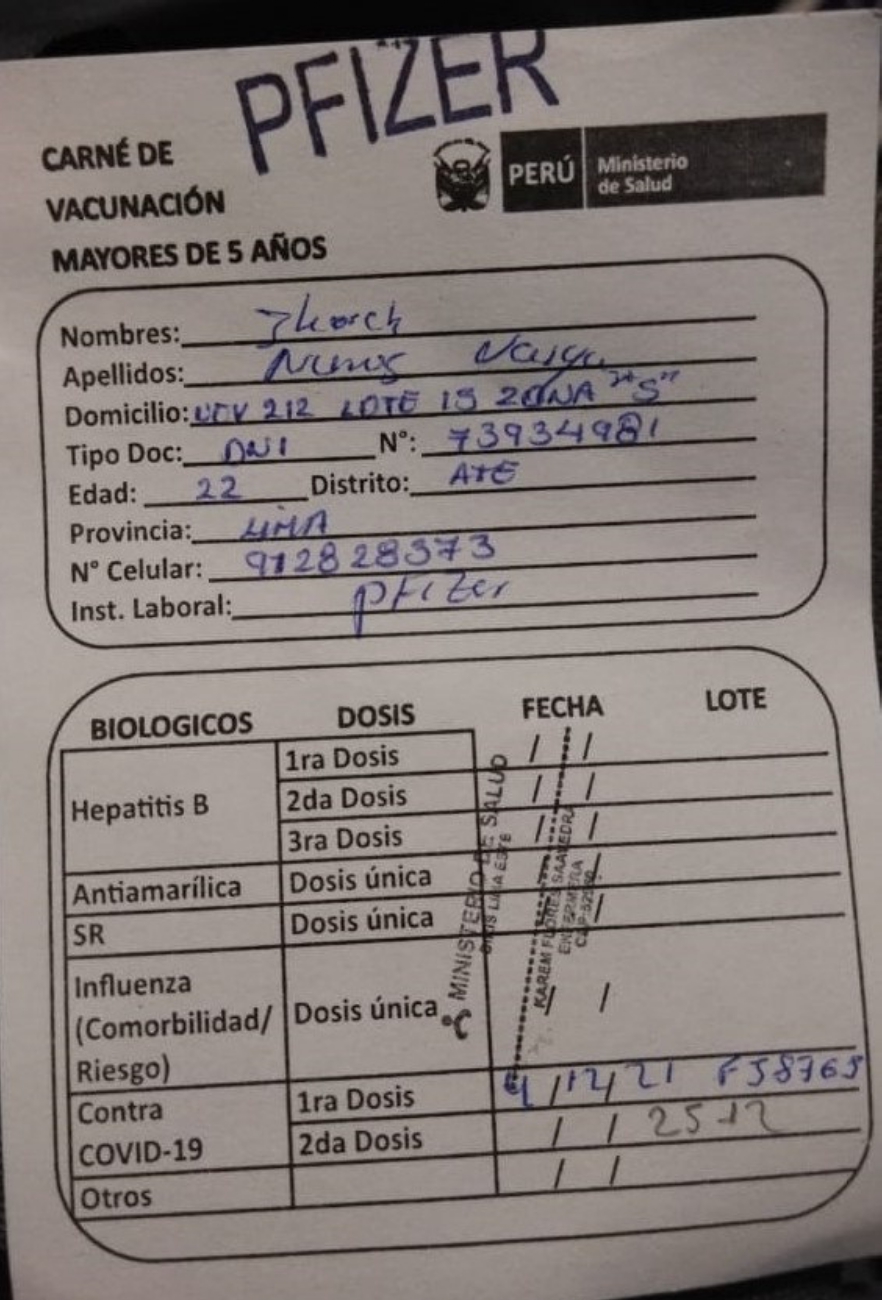 PFIZER
CARNÉ DE
VACUNACIÓN
MAYORES DE 5 AÑOS
PERÚ
Ministerio
de Salud
Nombres: Jhorch
Apellidos:
Domicilio: UCV 212 LOTE 15 ZONA "S"
Tipo Doc: DNI N°: 73934981
Edad: 22 Distrito: ATE
Provincia: LIMA
N° Celular: 912828373
Inst. Laboral: pfizer
BIOLOGICOS DOSIS FECHA LOTE
Hepatitis B
1ra Dosis / /
2da Dosis / /
3ra Dosis / /
Antiamarílica Dosis única /
SR Dosis única /
Influenza
(Comorbilidad/
Riesgo)
Dosis única / /
Contra
COVID-19
1ra Dosis 4/12/21
2da Dosis / / 25-12
Otros / /
MINISTERIO DE SALUD
DIRIS LIMA ESTE
KAREM FLORES SAAVEDRA
ENFERMERA